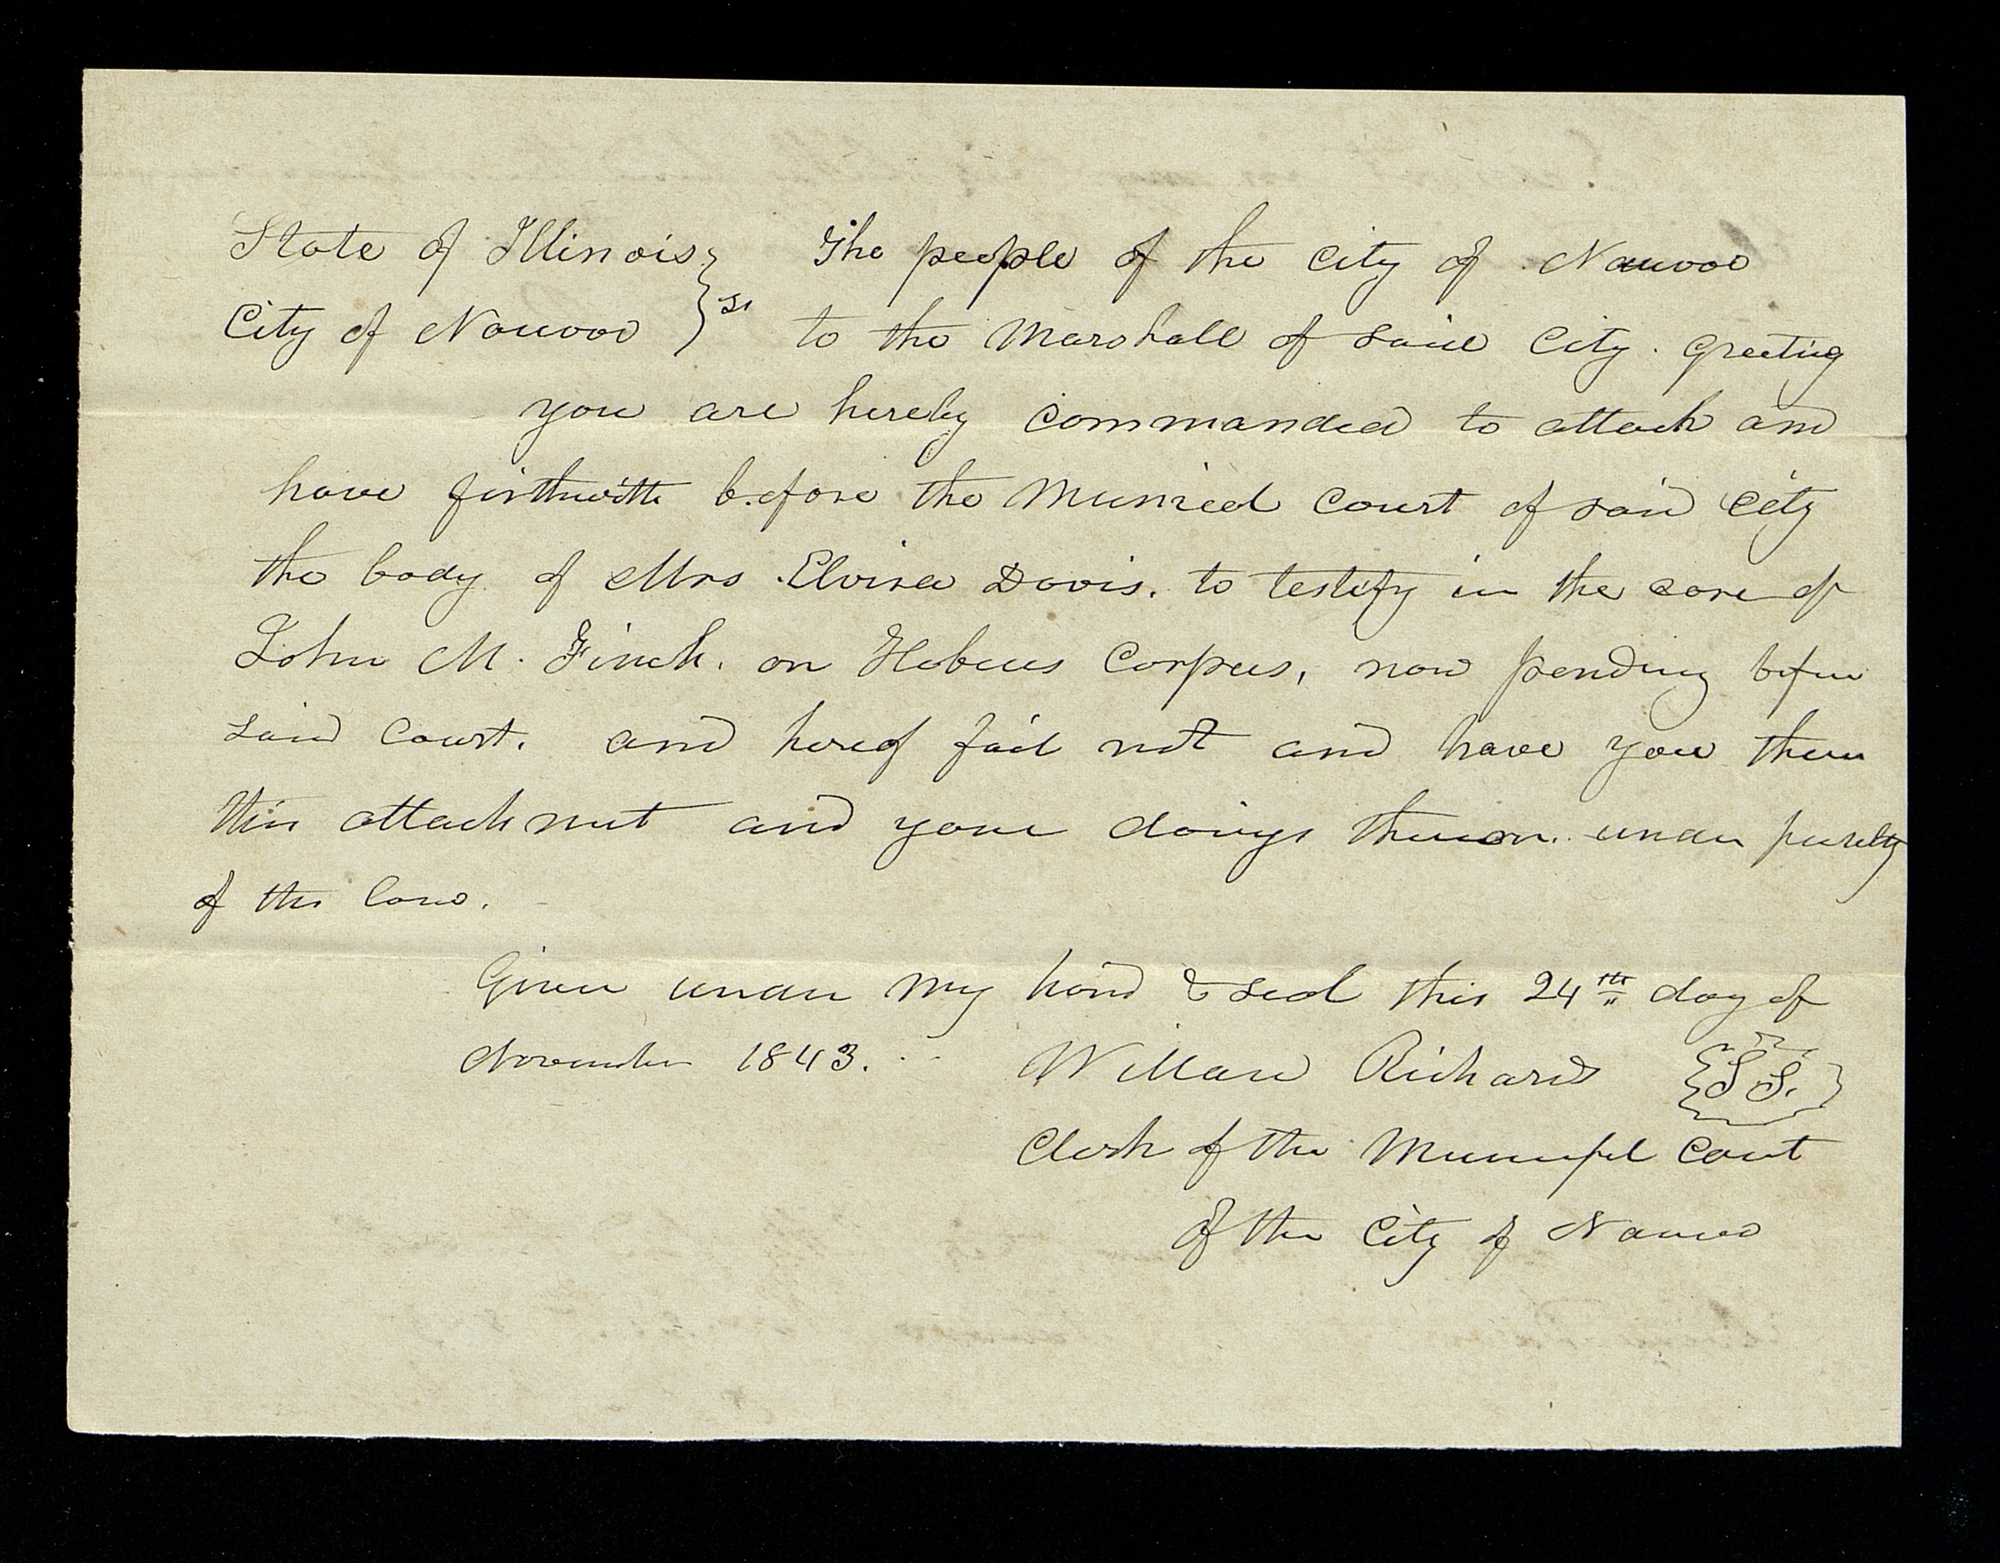 State of Illinois } The people of the City of Nauvoo
City of Nauvoo } ss to the Marshall of said City. Greeting
you are hereby commanded to attach and
have forthwith before the Municel Court of said City
the body of Mrs. Elvira Davis. to testify in the case of
John M. Finch. on Habeus Corpus, now pending before
said Court. and hereof fail not and have you then
this attachment and your doings thereon. under penalty
of the law.
Given under my hand & seal this 24th day of
November 1843.
Willard Richards {L S.}
Clerk of the Municipal Court
of the City of Nauvoo